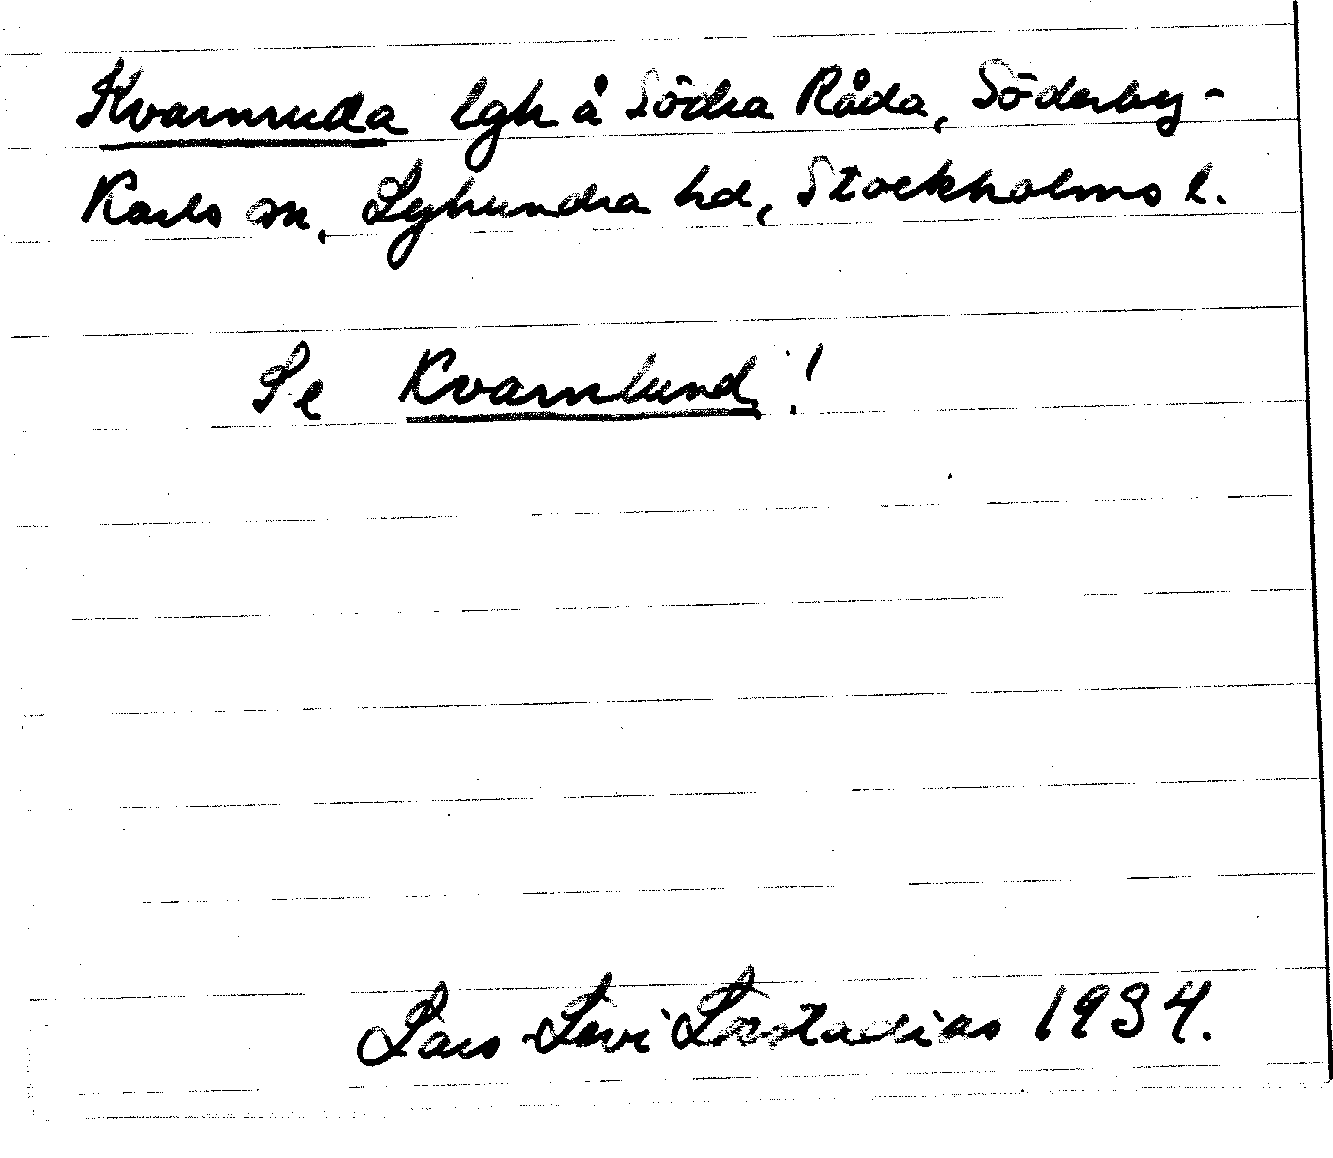 Kvarnruda lgh å Södra Råda, Söderby-
Karls sn, Lyhundra hd, Stockholms l.
Se Kvarnlund!
Lars Levi Læstadius 1934.